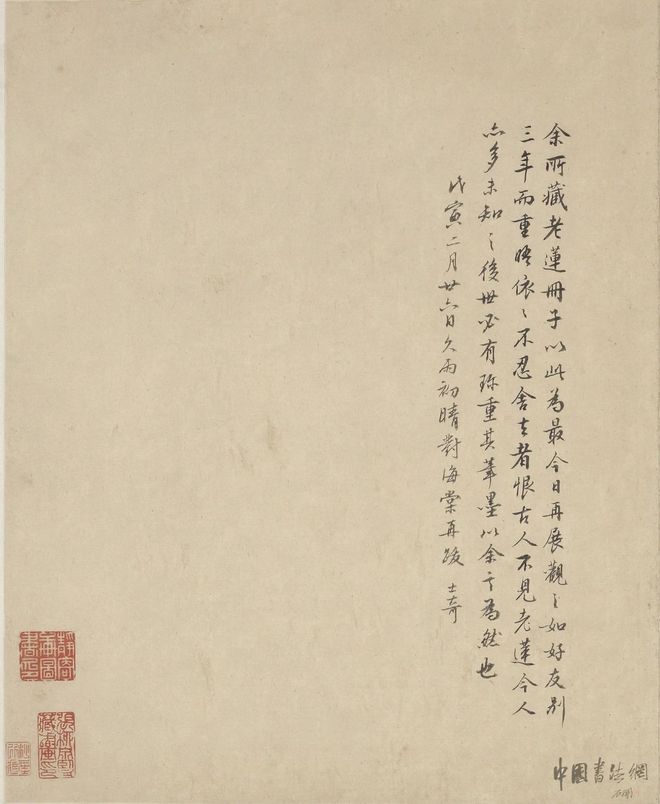 余所藏老蓮冊子以此為最今日再展觀〻如好友別
三年而重晤依〻不忍舍去者恨古人不見老蓮今人
亦多未知〻後世必有珍重其筆墨以余言為然也
戊寅二月廿六日久雨初晴對海棠再跋 士奇
中國書法網